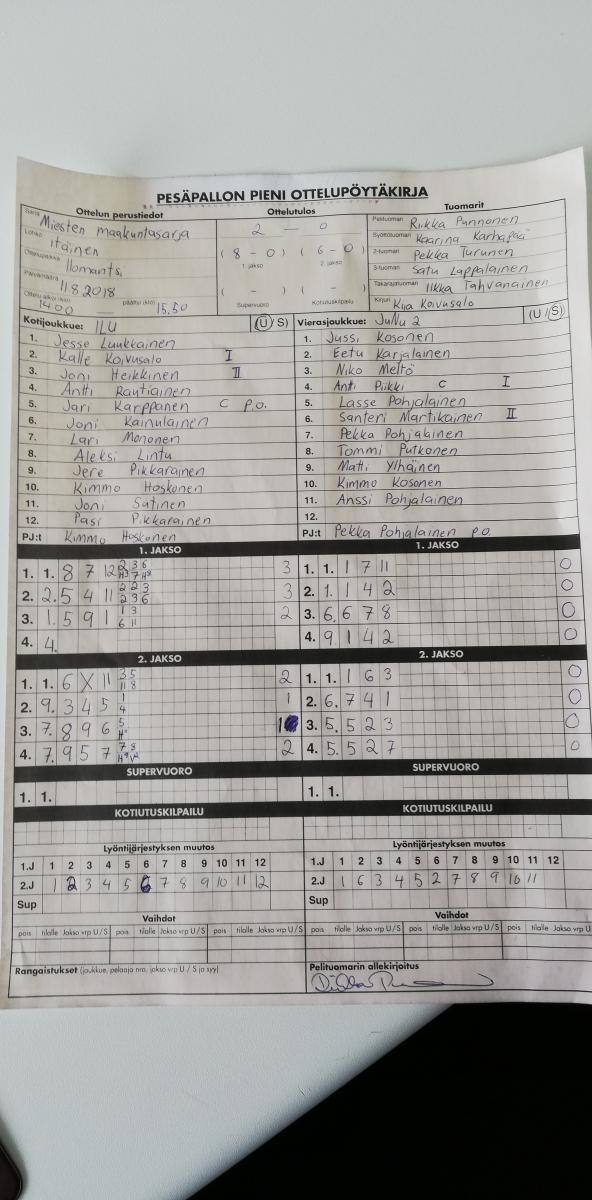 PESÄPALLON PIENI OTTELUPÖYTÄKIRJA
Ottelun perustiedot
Sarja Miesten maakuntasarja
Lohko Itäinen
Ottelupaikka Ilomantsi
Päivämäärä 11.8.2018
Ottelu alkoi (klo) 1400 päättyi (klo) 15.50
Ottelutulos
2 — 0
( 8 - 0 ) ( 6 - 0 )
1. jakso 2. jakso
( - ) ( - )
Supervuoro Kotiutuskilpailu
Tuomarit
Pelituomari Riikka Punnonen
Syöttötuomari Kaarina Karhapää
2-tuomari Pekka Turunen
3-tuomari Satu Lappalainen
Takarajatuomari Ilkka Tahvanainen
Kirjuri Kija Koivusalo
Kotijoukkue: ILU (U/S)
1. Jesse Luukkainen
2. Kalle Koivusalo I
3. Joni Heikkinen II
4. Antti Rautiainen
5. Jari Karppanen C p.o.
6. Joni Kainulainen
7. Lari Mononen
8. Aleksi Lintu
9. Jere Pikkarainen
10. Kimmo Hoskonen
11. Joni Sutinen
12. Pasi Pikkarainen
PJ:t Kimmo Hoskonen
Vierasjoukkue: JuNu 2 (U/S)
1. Jussi Kosonen
2. Eetu Karjalainen
3. Niko Meltö
4. Anti Piikki C I
5. Lasse Pohjalainen
6. Santeri Martikainen II
7. Pekka Pohjalainen
8. Tommi Putkonen
9. Matti Ylhäinen
10. Kimmo Kosonen
11. Anssi Pohjalainen
12.
PJ:t Pekka Pohjalainen p.o
1. JAKSO
1. 1. 8 7 12 2 3 6 3
2. 2. 5 4 11 2 2 3 2 3 6 3
3. 1. 5 9 1 1 3 6 11 2
4. 4.
1. JAKSO
1. 1. 1 7 11 0
2. 1. 1 4 2 0
3. 6. 6 7 8 0
4. 9. 1 4 2 0
2. JAKSO
1. 1. 6 X 11 3 5 11 8 2
2. 9. 3 4 5 1 4 1
3. 7. 8 9 6 5 1
4. 7. 9 5 7 7 8 2
2. JAKSO
1. 1. 1 6 3 0
2. 6. 7 4 1 0
3. 5. 5 2 3 0
4. 5. 5 2 7 0
SUPERVUORO
1. 1.
SUPERVUORO
1. 1.
KOTIUTUSKILPAILU
KOTIUTUSKILPAILU
Lyöntijärjestyksen muutos
1.J 1 2 3 4 5 6 7 8 9 10 11 12
2.J 1 2 3 4 5 6 7 8 9 10 11 12
Sup
Lyöntijärjestyksen muutos
1.J 1 2 3 4 5 6 7 8 9 10 11 12
2.J 1 6 3 4 5 2 7 8 9 10 11
Sup
Vaihdot
pois tilalle Jakso vrp U/S pois tilalle Jakso vrp U/S pois tilalle Jakso vrp U/S
Vaihdot
pois tilalle Jakso vrp U/S pois tilalle Jakso vrp U/S pois tilalle Jakso vrp U
Rangaistukset (joukkue, pelaaja nro, jakso vrp U / S ja syy)
Pelituomarin allekirjoitus